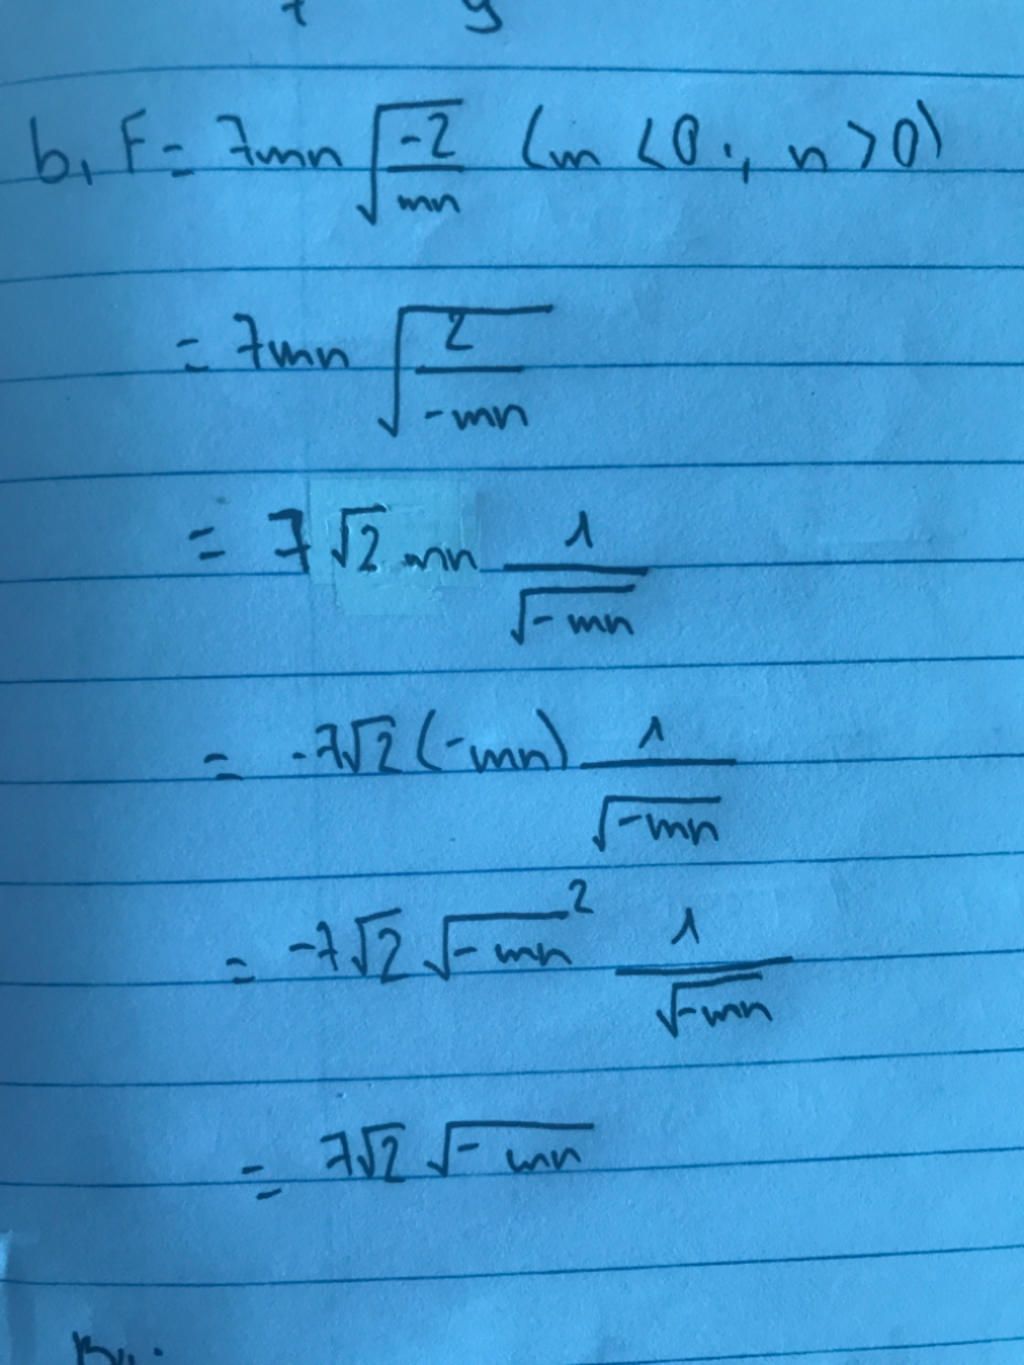 b, F = 7mn √(-2/mn) (m < 0 ; n > 0)
= 7mn √(2/-mn)
= 7√2 mn 1/√(-mn)
= -7√2 (-mn) 1/√(-mn)
= -7√2 √(-mn)² 1/√(-mn)
= 7√2 √(-mn)